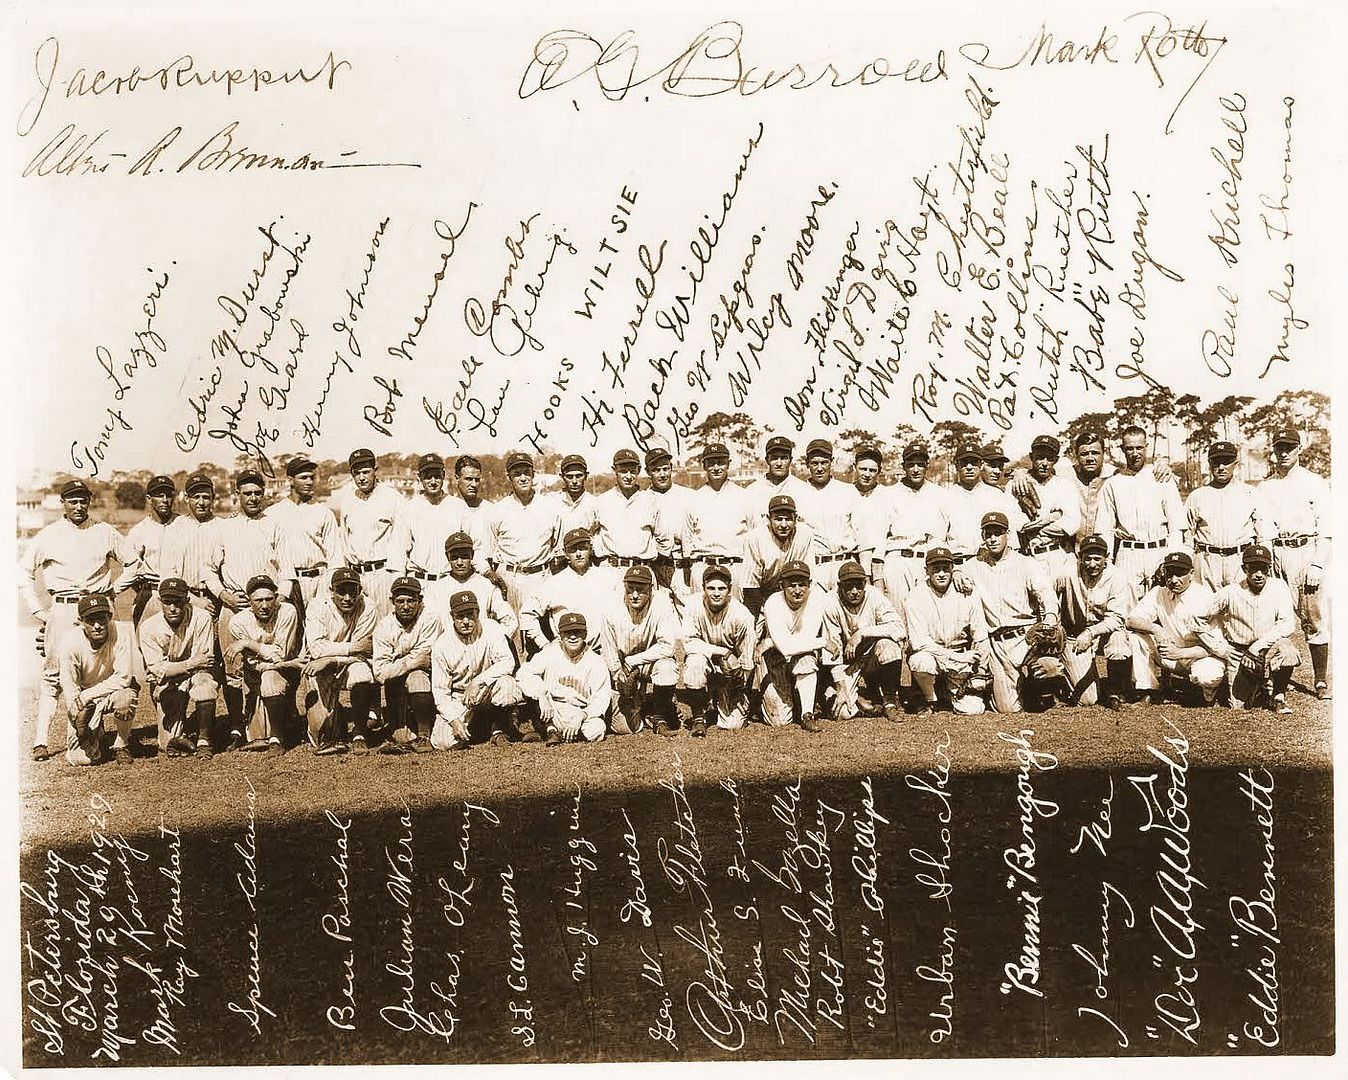 Jacob Ruppert
A. G. Burrow
Mark Roth
R. Brennan
Tony Lazzeri.
Cedric M. Durst.
John Grabowski
Joe Giard
Henry Johnson
Bob Meusel
Earle Combs
Lou Gehrig.
HOOKS WILTSIE
Hi Ferrell
Back Williams
Geo W Pipgras.
Wilcy Moore.
Virgil L. Davis
Waite C Hoyt.
Roy. M. Chesterfield.
Walter E. Beall
Pat. Collins
"Dutch" Ruether
"Babe" Ruth
Joe Dugan.
Paul Krichell
Myles Thomas
St Petersburg
Florida
March 29th
Mark Koenig
Ray Morehart
Spence Adams
Ben Paschal
Julian Wera
Chas. O'Leary
S.L. Cannon
M. J. Huggins
Geo. W. Davis
Arthur Fletcher
Elias S. Funk
Michael Gazella
Robt Sharkey
"Eddie" Phillips
Urban Shocker
"Bennie" Bengough
Johnny Nee
"Doc" A. A. Woods
"Eddie" Bennett